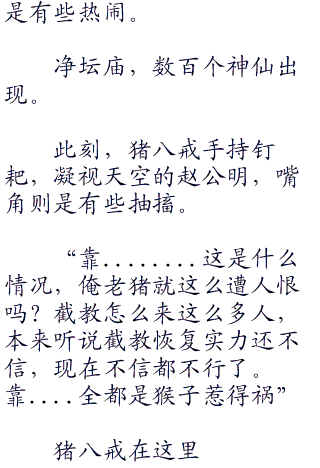 是有些热闹。
净坛庙，数百个神仙出
现。
此刻，猪八戒手持钉
耙，凝视天空的赵公明，嘴
角则是有些抽搐。
“靠........这是什么
情况，俺老猪就这么遭人恨
吗？截教怎么来这么多人，
本来听说截教恢复实力还不
信，现在不信都不行了。
靠....全都是猴子惹得祸”
猪八戒在这里